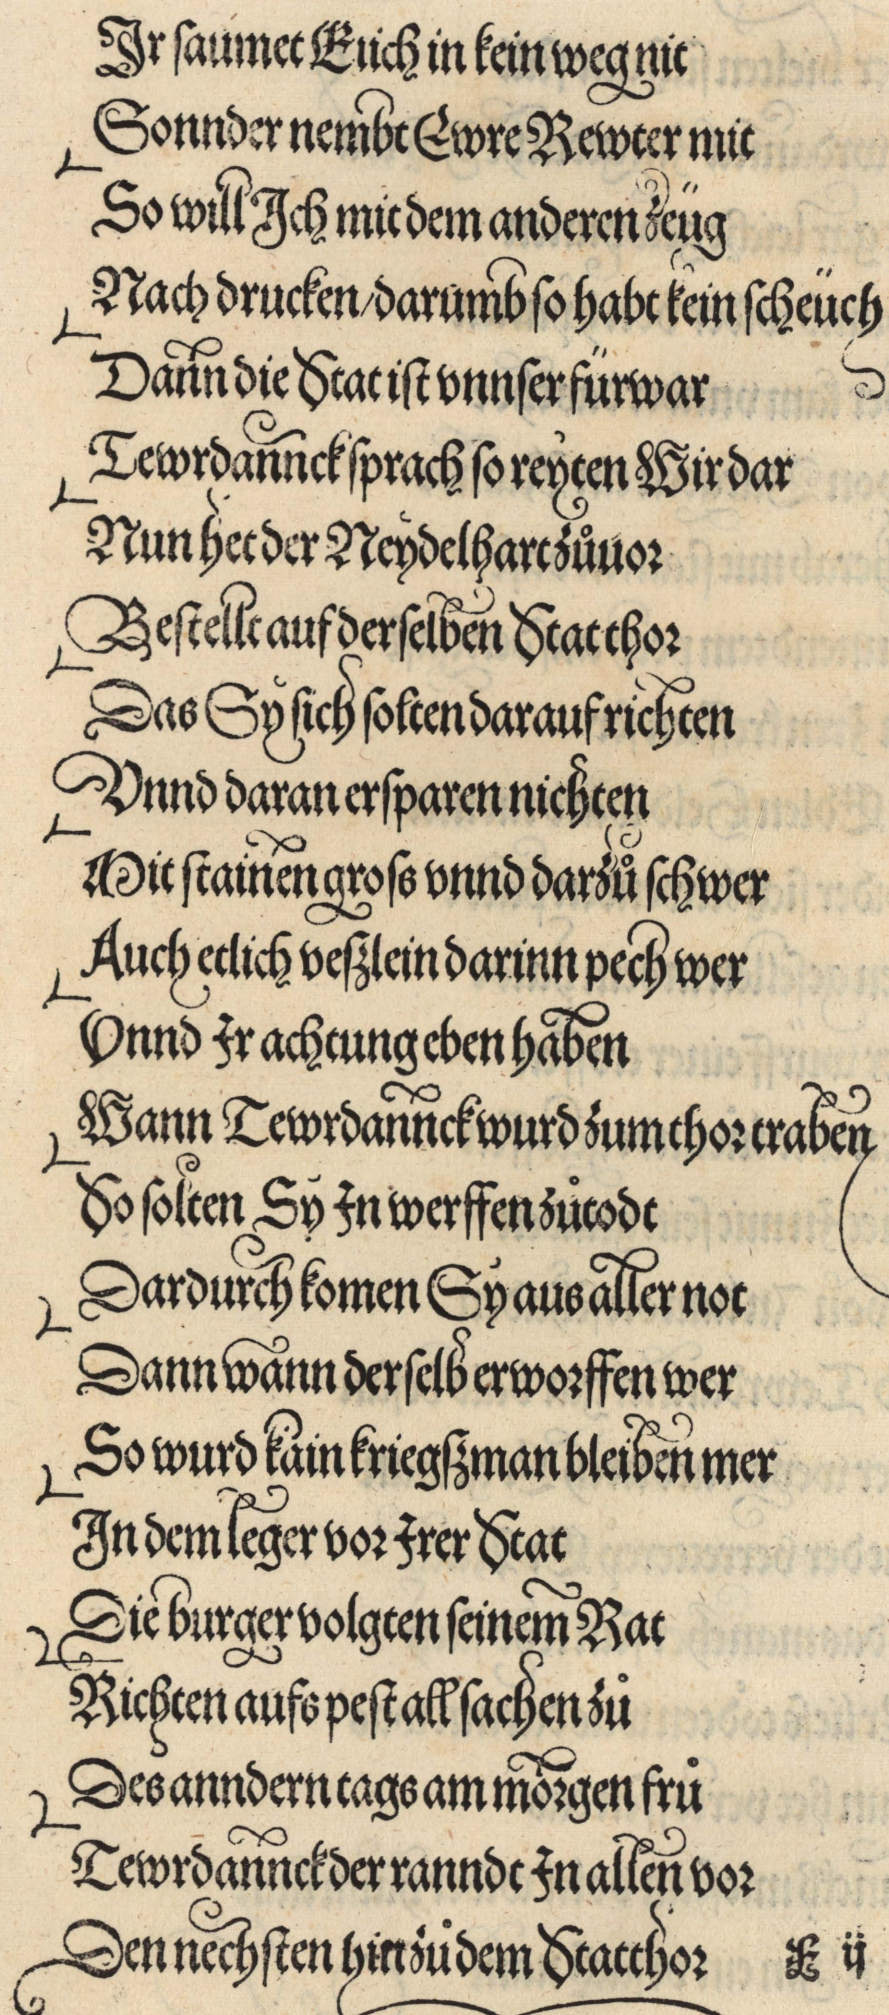 Ir saumet Euch in kein weg nit
Sonnder nembt Ewre Rewter mit
So will Ich mit dem anderen zeüg
Nach drucken/darumb so habt kein scheüch
Dann die Stat ist vnnser fürwar
Tewrdannck sprach so reyten Wir dar
Nun het der Neydelhart zůuor
Bestellt auf derselben Stat thor
Das Sy sich solten darauf richten
Vnnd daran ersparen nichten
Mit stainen gross vnnd darzů schwer
Auch etlich veszlein darinn pech wer
Vnnd Ir achtung eben haben
Wann Tewrdannck wurd zum thor traben
So solten Sy In werffen zůtodt
Dardurch komen Sy aus aller not
Dann wann derselb erworffen wer
So wurd kain kriegszman bleiben mer
In dem leger vor Irer Stat
Die burger volgten seinem Rat
Richten aufs pest all sachen zů
Des anndern tags am morgen frů
Tewrdannck der ranndt In allen vor
Den nechsten hinzů dem Statthor
E ij